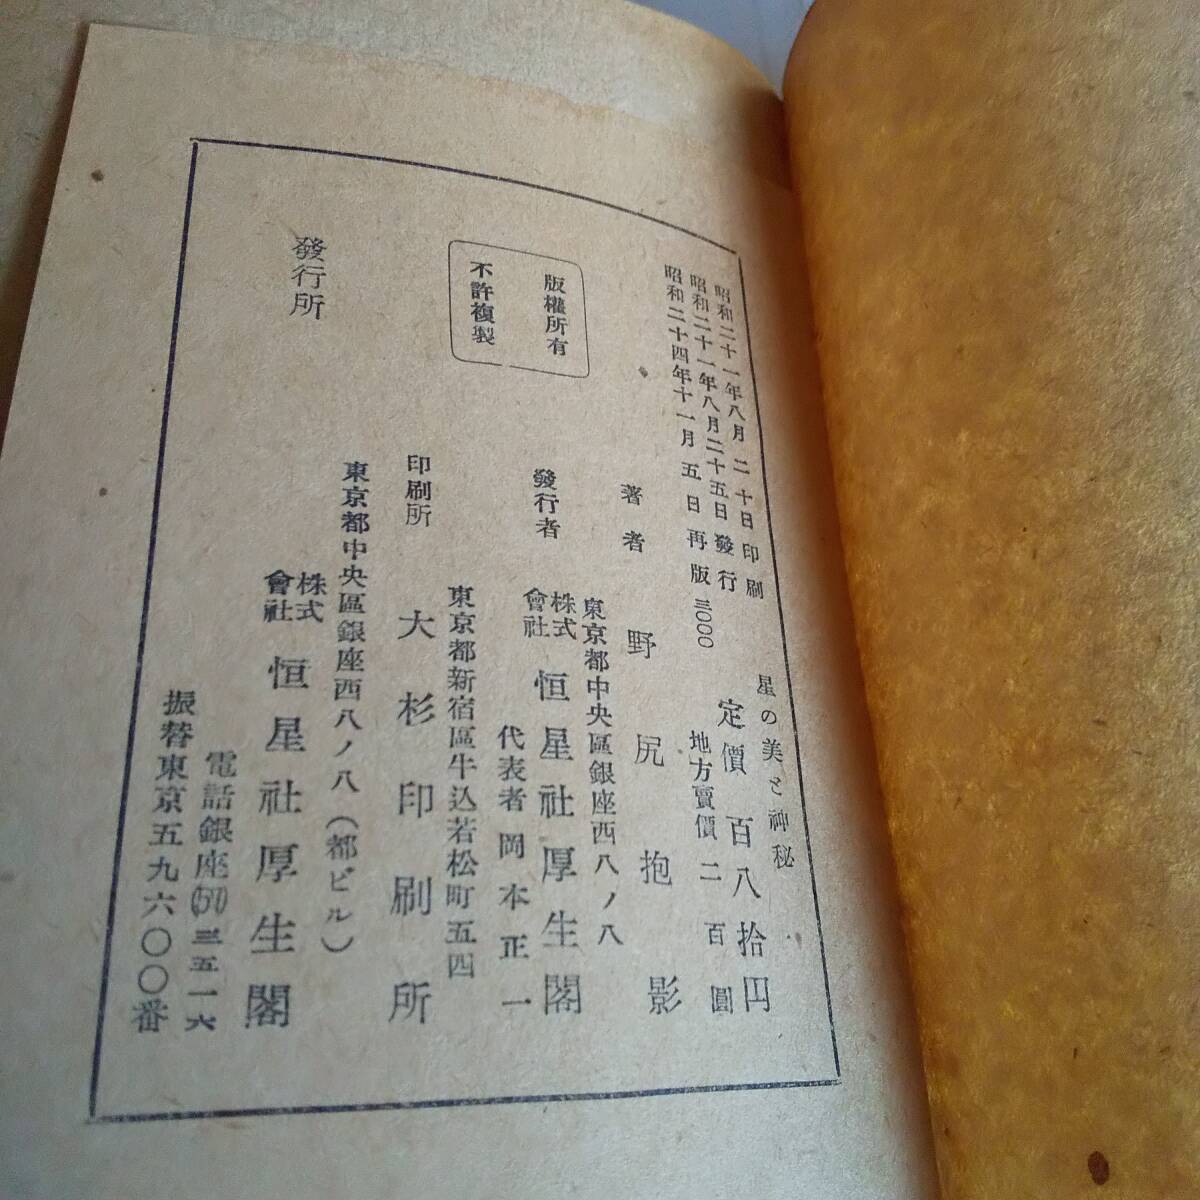 昭和二十一年八月二十日印刷
昭和二十一年八月二十五日發行
昭和二十四年十一月五日再版 三〇〇〇
星の美と神秘
定價 百八拾円
地方賣價 二百圓
版權所有
不許複製
著者 野尻抱影
東京都中央區銀座西八ノ八
發行者 株式會社 恒星社厚生閣
代表者 岡本正一
東京都新宿區牛込若松町五四
印刷所 大杉印刷所
東京都中央區銀座西八ノ八(都ビル)
發行所 株式會社 恒星社厚生閣
電話銀座(57)三五一六
振替東京五九六〇〇番